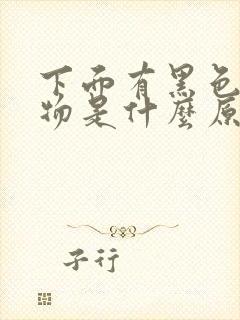 下面有黑色
物是什麼原
子行